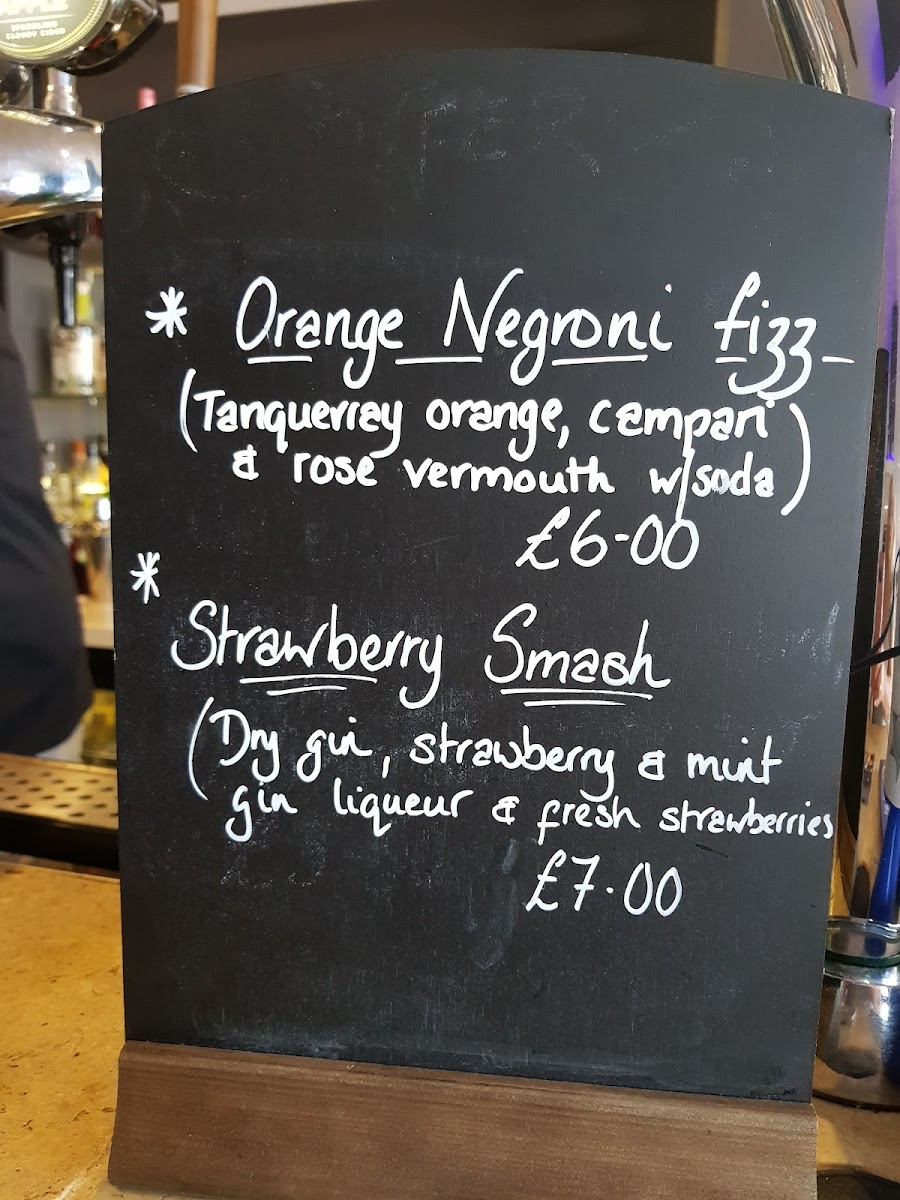 SPARKLING
CLOUDY CIDER
* Orange Negroni fizz
(Tanquerray orange, campari
& rose vermouth w/soda)
£6-00
*
Strawberry Smash
(Dry gin, strawberry & mint
gin liqueur & fresh strawberries
£7.00